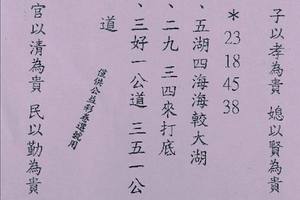 子以孝為貴 媳以賢為貴
＊23 18 45 38
、五湖四海海較大湖
、二九 三四來打底
、三好一公道 三五一公
道
僅供公益彩卷選號用
官以清為貴 民以勤為貴